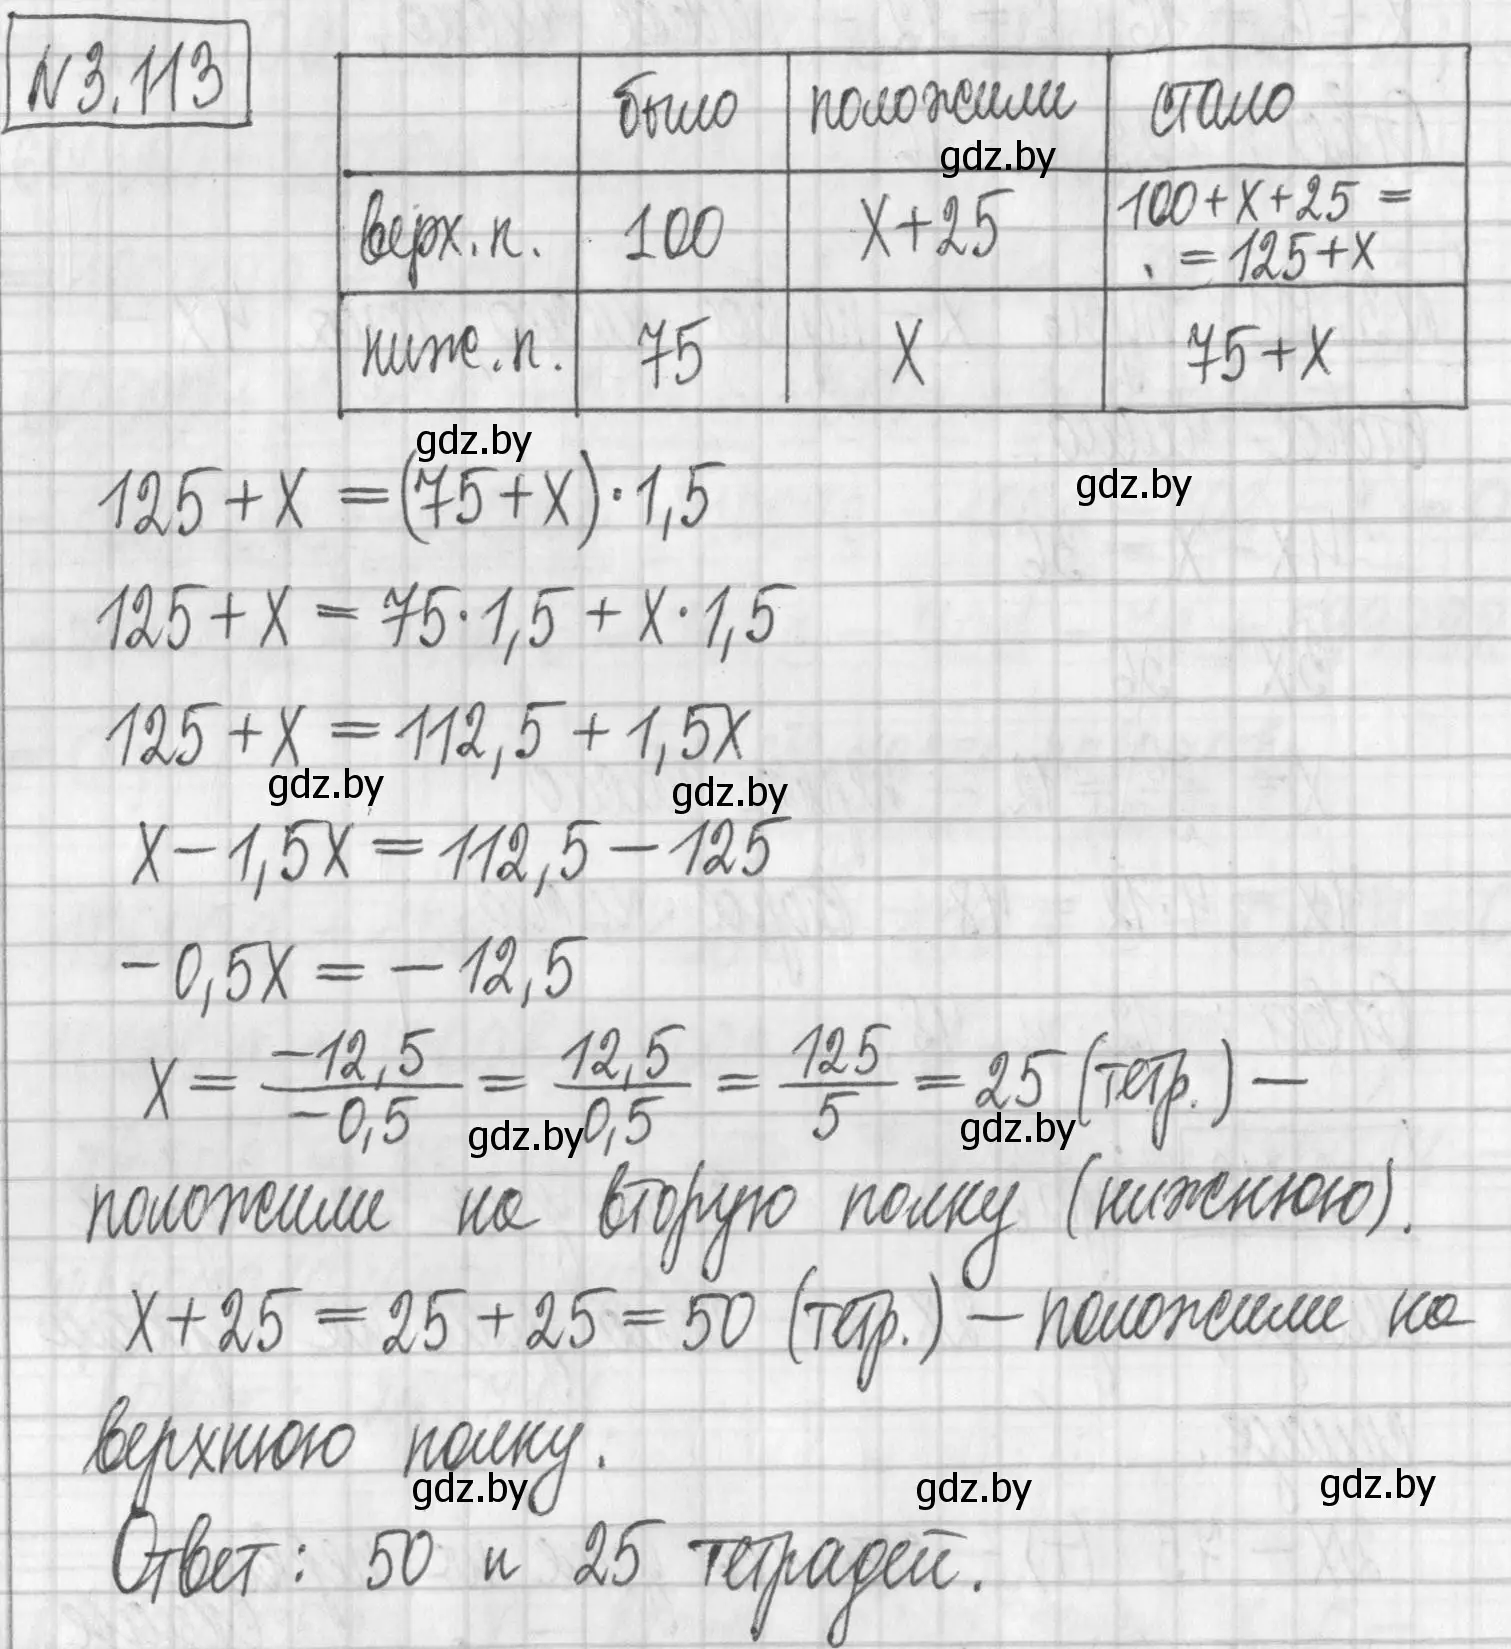 N3.113
было положили стало
gdz.by
верх.п. 100 x+25 100+x+25 =
= 125+x
ниж.п. 75 x 75+x
gdz.by
125+x =(75+x)·1,5
gdz.by
125+x = 75·1,5 + x·1,5
125+x = 112,5 + 1,5x
gdz.by gdz.by
x-1,5x = 112,5-125
-0,5x = -12,5
x = -12,5/-0,5 = 12,5/0,5 = 125/5 = 25 (тетр.) -
gdz.by gdz.by
положили на вторую полку (нижнюю).
x+25 = 25+25 = 50 (тетр.) - положили на
верхнюю полку.
gdz.by gdz.by gdz.by
Ответ: 50 и 25 тетрадей.